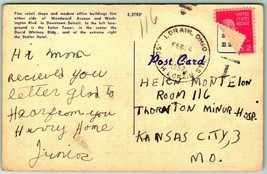 Fine retail shops and modern office buildings line
either side of Woodward Avenue and Wash-
ington Blvd. in Downtown Detroit. In the left fore-
ground is the Eaton Tower, in the center the
David Whitney Bldg., and at the extreme right
the Statler Hotel.
116
Post Card
LORAIN, OHIO
FEB
Hi Mom
Recieved your
letter glad to
Hear from you
Hurry Home
Junior
HELEN MONTEION
ROOM 116
THORNTON MINOR HOSP.
KANSAS CITY, 3
MO.